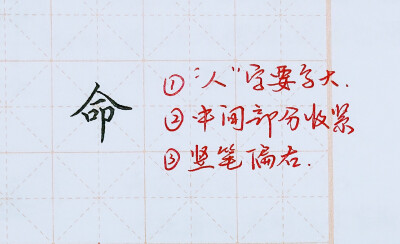 命
① “人”字要写大.
② 中间部分收紧
③ 竖笔偏右.